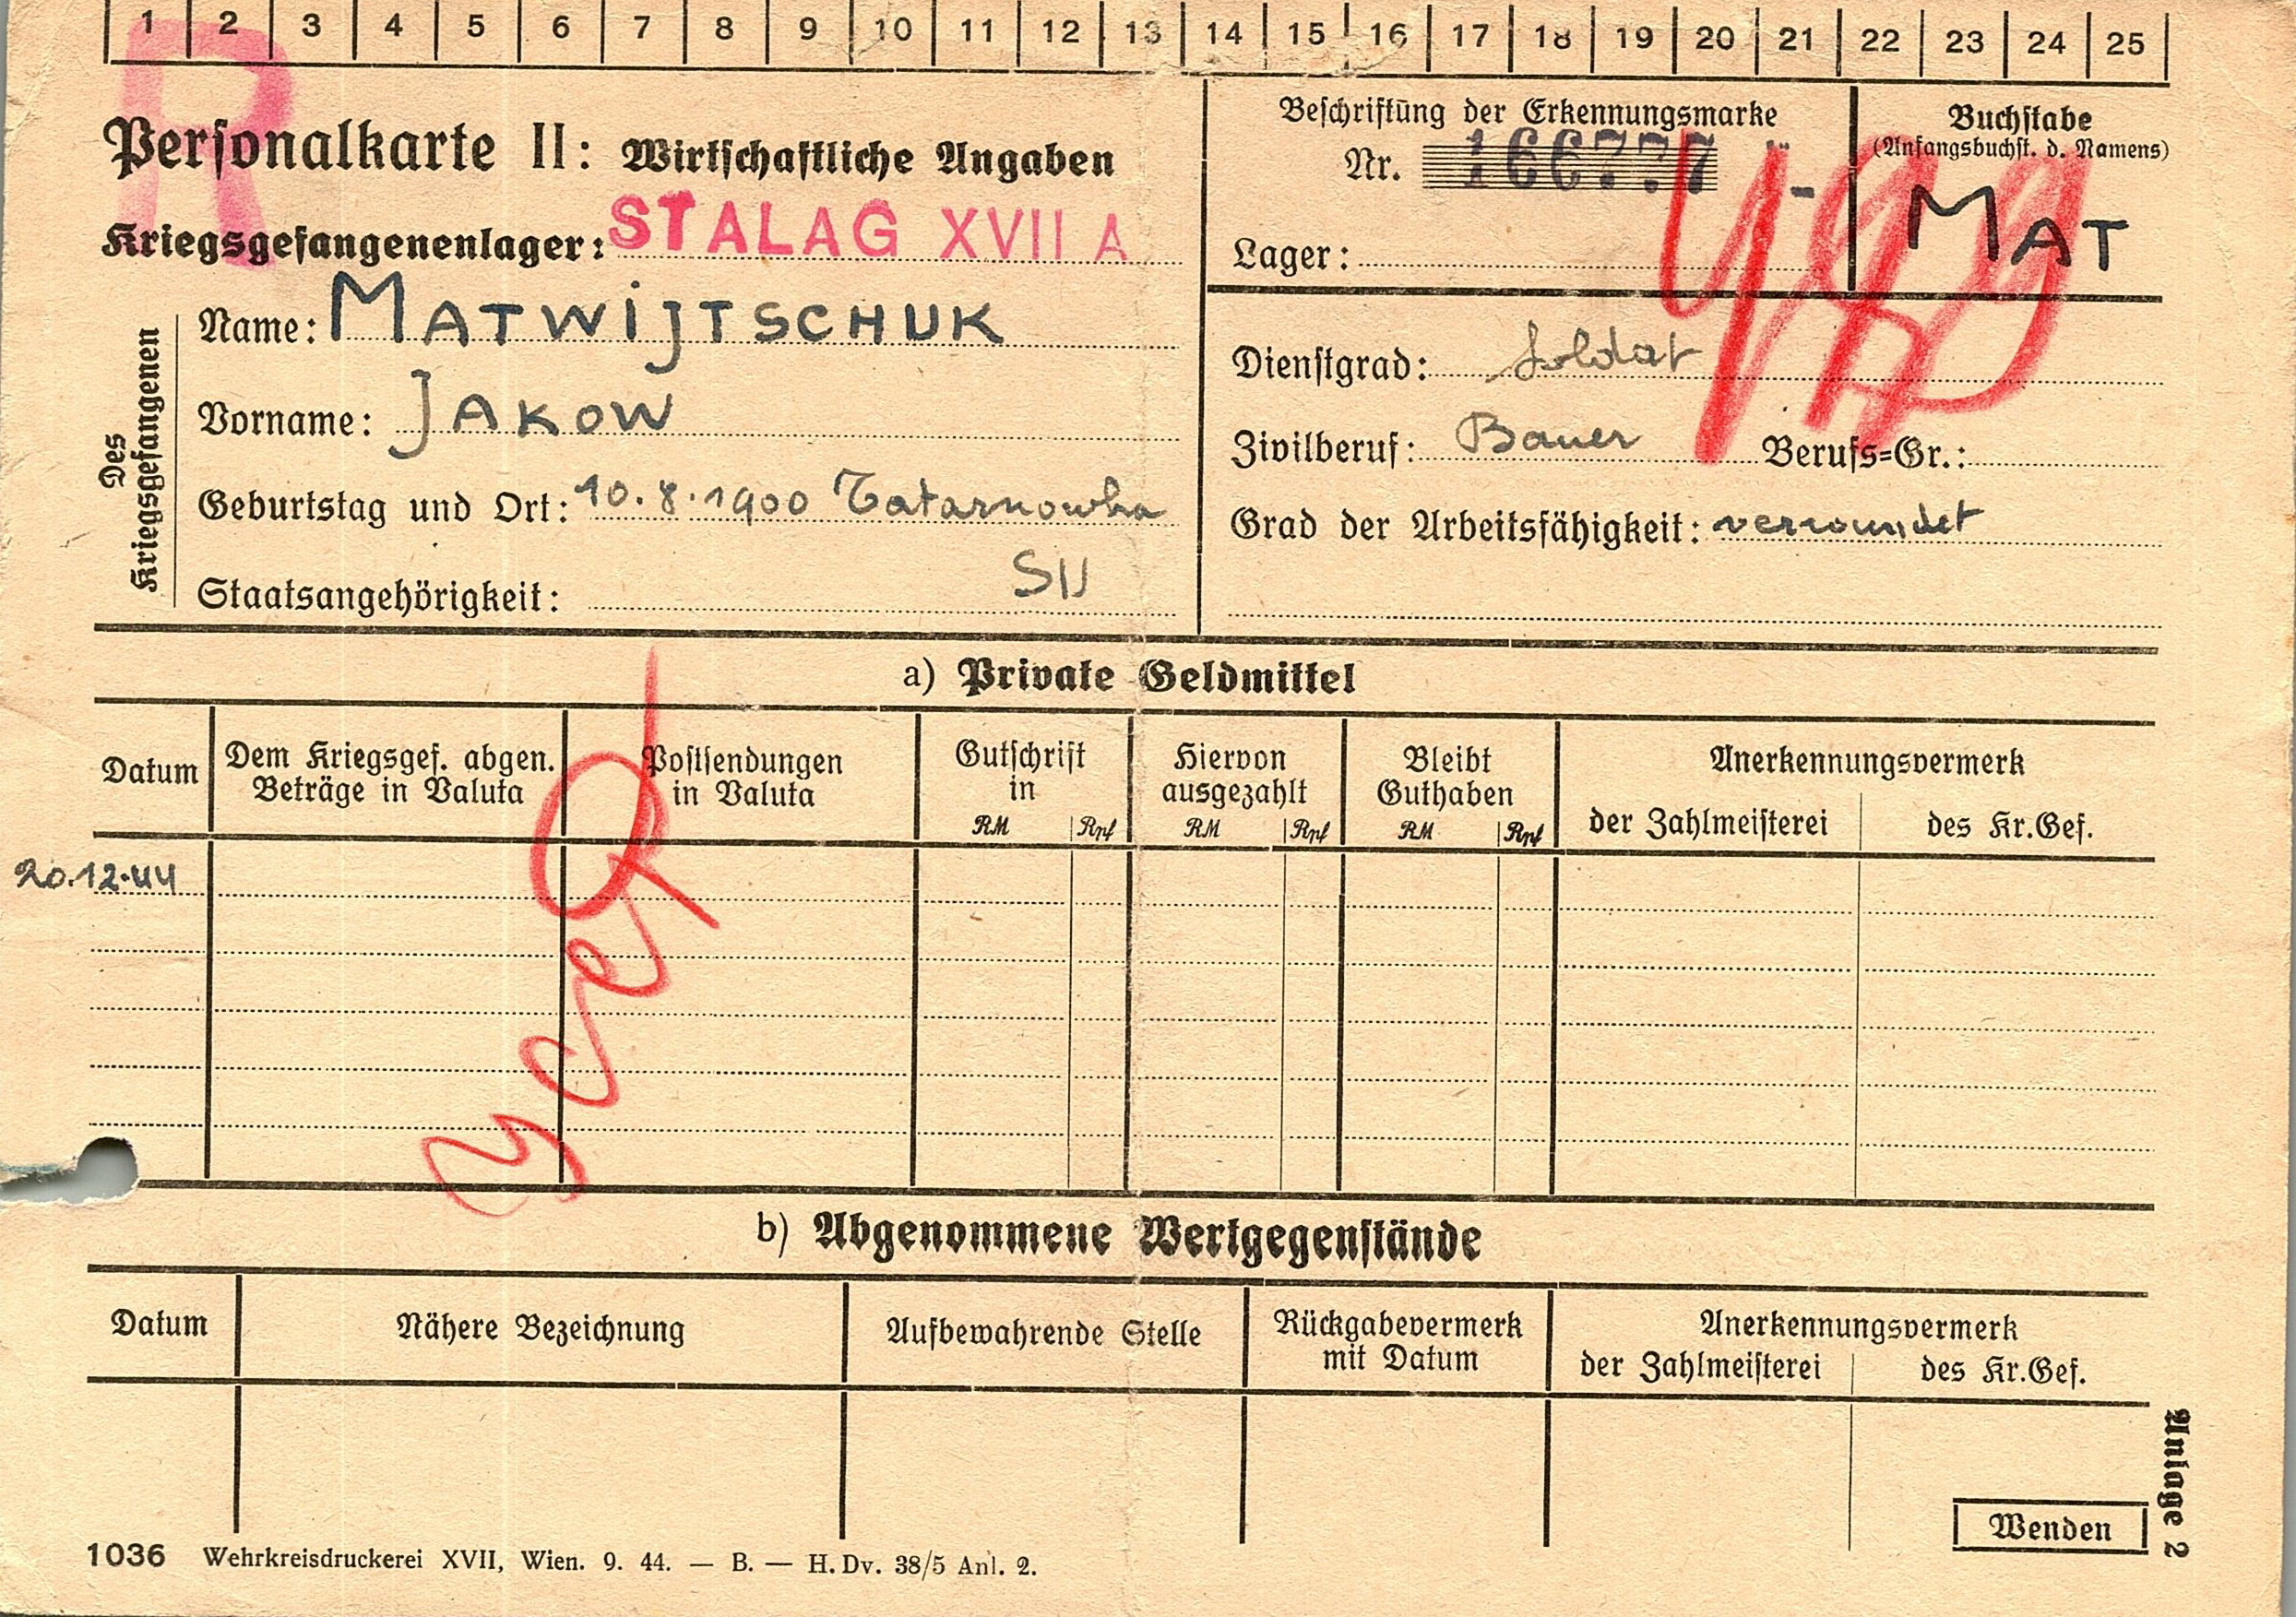 1 2 3 4 5 6 7 8 9 10 11 12 13 14 15 16 17 18 19 20 21 22 23 24 25
R
Personalkarte II: Wirtschaftliche Angaben
Kriegsgefangenenlager: STALAG XVII A
Des Kriegsgefangenen
Name: MATWIJTSCHUK
Vorname: JAKOW
Geburtstag und Ort: 10.8.1900 Tatarnowka
Staatsangehörigkeit: SU
Beschriftung der Erkennungsmarke
Nr. 166777
Lager:
Buchstabe
(Anfangsbuchst. d. Namens)
MAT
Dienstgrad: Soldat
Zivilberuf: Bauer Berufs=Gr.:
Grad der Arbeitsfähigkeit: verwundet
a) Private Geldmittel
Datum
Dem Kriegsgef. abgen.
Beträge in Valuta
Postsendungen
in Valuta
Gutschrift
in
RM Rpf
Hiervon
ausgezahlt
RM Rpf
Bleibt
Guthaben
RM Rpf
Anerkennungsvermerk
der Zahlmeisterei des Kr.Gef.
20.12.44
b) Abgenommene Wertgegenstände
Datum
Nähere Bezeichnung
Aufbewahrende Stelle
Rückgabevermerk
mit Datum
Anerkennungsvermerk
der Zahlmeisterei des Kr.Gef.
Anlage 2
Wenden
1036 Wehrkreisdruckerei XVII, Wien. 9. 44. — B. — H. Dv. 38/5 Anl. 2.